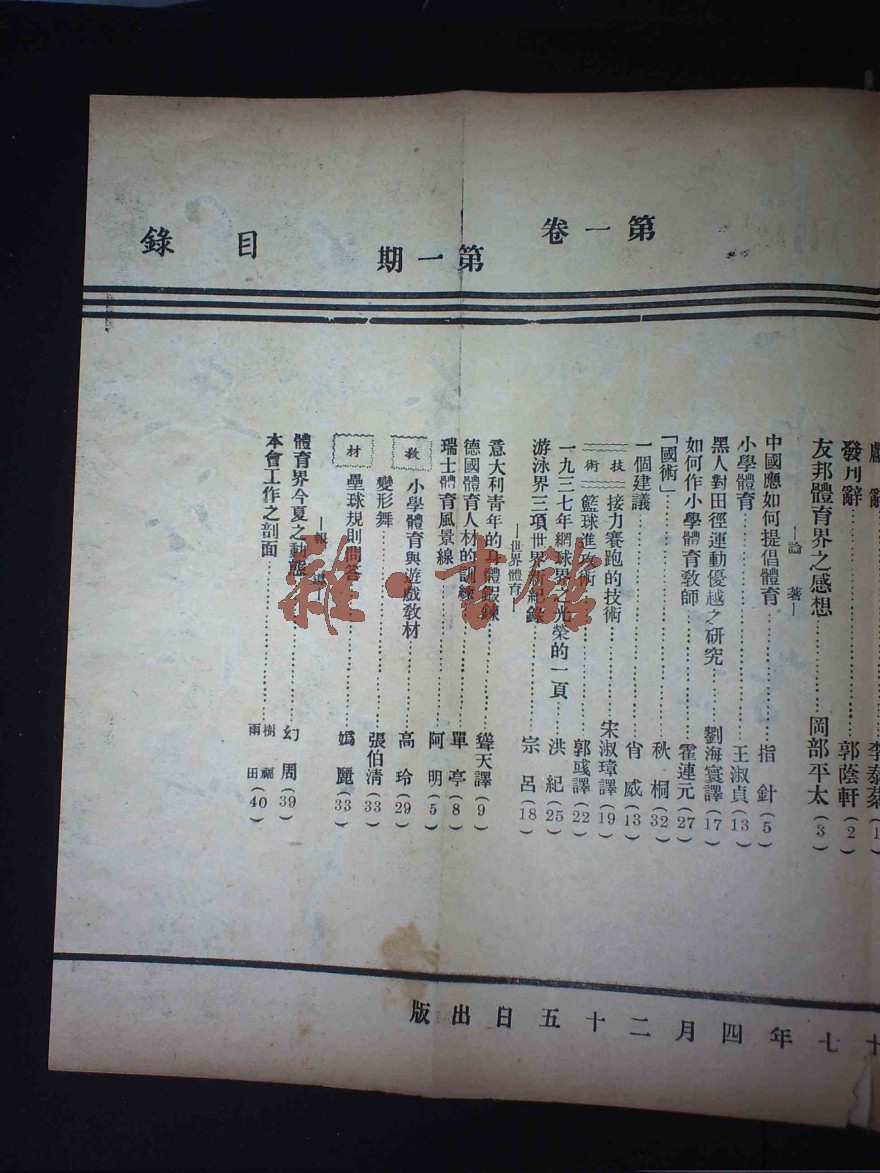 第一卷
第一期
目錄
辭……李泰棻(1
發刊辭……郭蔭軒(2)
友邦體育界之感想……岡部平太(3)
—論著—
中國應如何提倡體育……指針(5)
小學體育……王淑貞(13)
黑人對田徑運動優越之研究……劉海寰譯(17)
如何作小學體育教師……霍連元(27)
「國術」……秋桐(32)
一個建議……肖威(13)
技術
接力賽跑的技術……宋淑璋譯(19)
籃球進攻術……郭彧譯(22)
一九三七年網球界之光榮的一頁……洪紀(25)
游泳界三項世界新紀錄……宗呂(18)
—世界體育—
意大利青年的身體鍛鍊……聳天譯(9)
德國體育人材的訓練……單亭(8)
瑞士體育風景線……阿明(5)
教材
小學體育與遊戲教材……高玲(29)
變形舞……張伯清(33)
壘球規則問答……嫣麗(33)
—報
體育界今夏之動態……幻周(39)
本會工作之剖面……樹福 雨田(40)
十七年四月二十五日出版
雜·書館